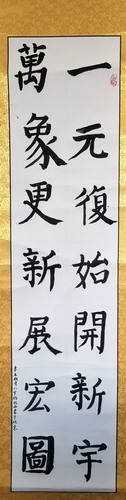 一元復始開新宇
萬象更新展宏圖